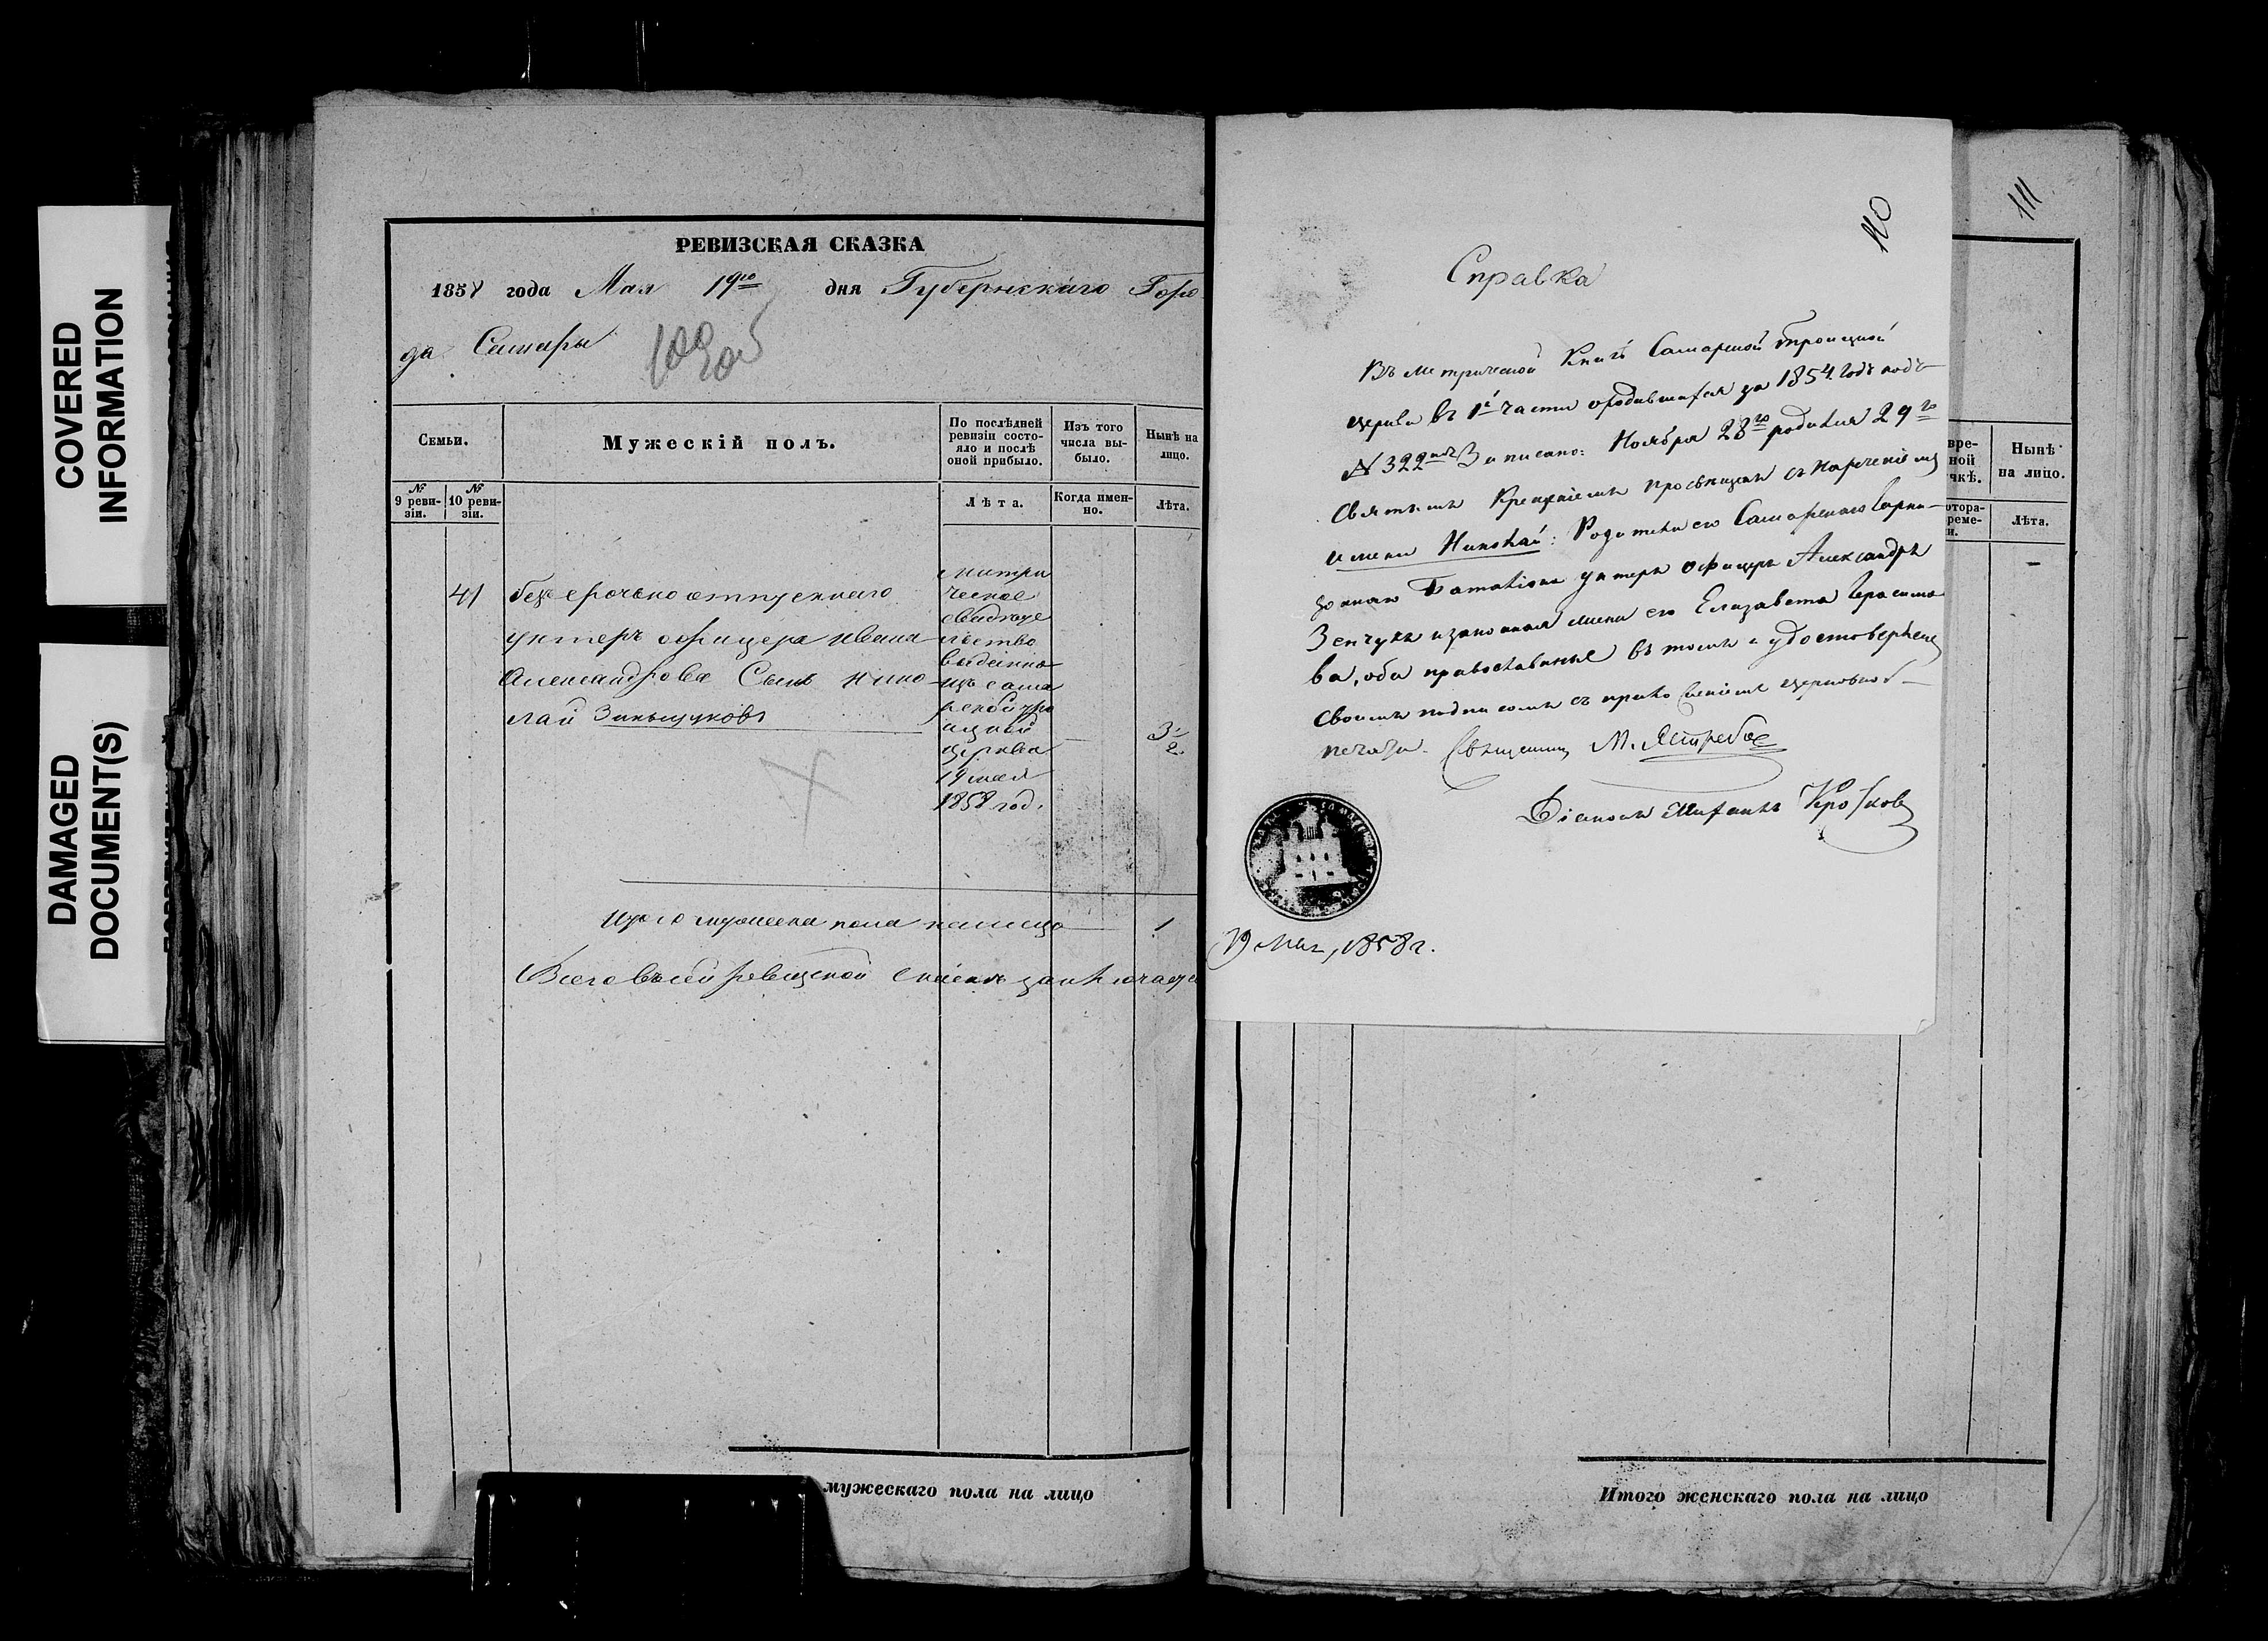 COVERED
INFORMATION
DAMAGED
DOCUMENT(S)
РЕВИЗСКАЯ СКАЗКА
1858 года Мая 19го дня Губернскаго Горо
да Самары
Семьи.
Мужескій полъ.
По послѣдней
ревизіи состо-
яло и послѣ
оной прибыло.
Изъ того
числа вы-
было.
Нынѣ на
лицо.
№
9 реви-
зіи.
№
10 реви-
зіи.
Лѣта.
Когда имен-
но.
Лѣта.
41
безсрочно отпускнаго
унтеръ офицера Ивана
Александрова Сынъ Нико
лай Зиньчуковъ
метри
ческое
свидѣте
льство
выданно
изъ сама
рской тро
ицкой
церкви
19 мая
1858 год.
3 1/2
Итого мужеска пола на лицо 1
Всего въ сей ревизской сказке заключается
мужескаго пола на лицо
110
Справка
Въ метрической Книгѣ Самарской Троицкой
церкви въ 1й части о родившихся за 1854 годъ подъ
№ 322мъ Записано: Ноября 28го родился 29го
Святымъ Крещеніемъ просвященъ съ нареченіемъ
имени Николай: Родители его Самарскаго Гарни-
зоннаго Баталіона унтеръ офицеръ Александръ
Зенчукъ и законная жена его Елизавета Герасимо
ва, оба православные въ томъ и удостовѣряемъ
своимъ подписомъ съ приложеніемъ церковной
печати. Священникъ М. Ястребовъ
Діаконъ Кротковъ
19 Мая, 1858 г.
111
вре-
ной
чкѣ.
Нынѣ
на лицо.
отора-
реме-
и.
Лѣта.
Итого женскаго пола на лицо